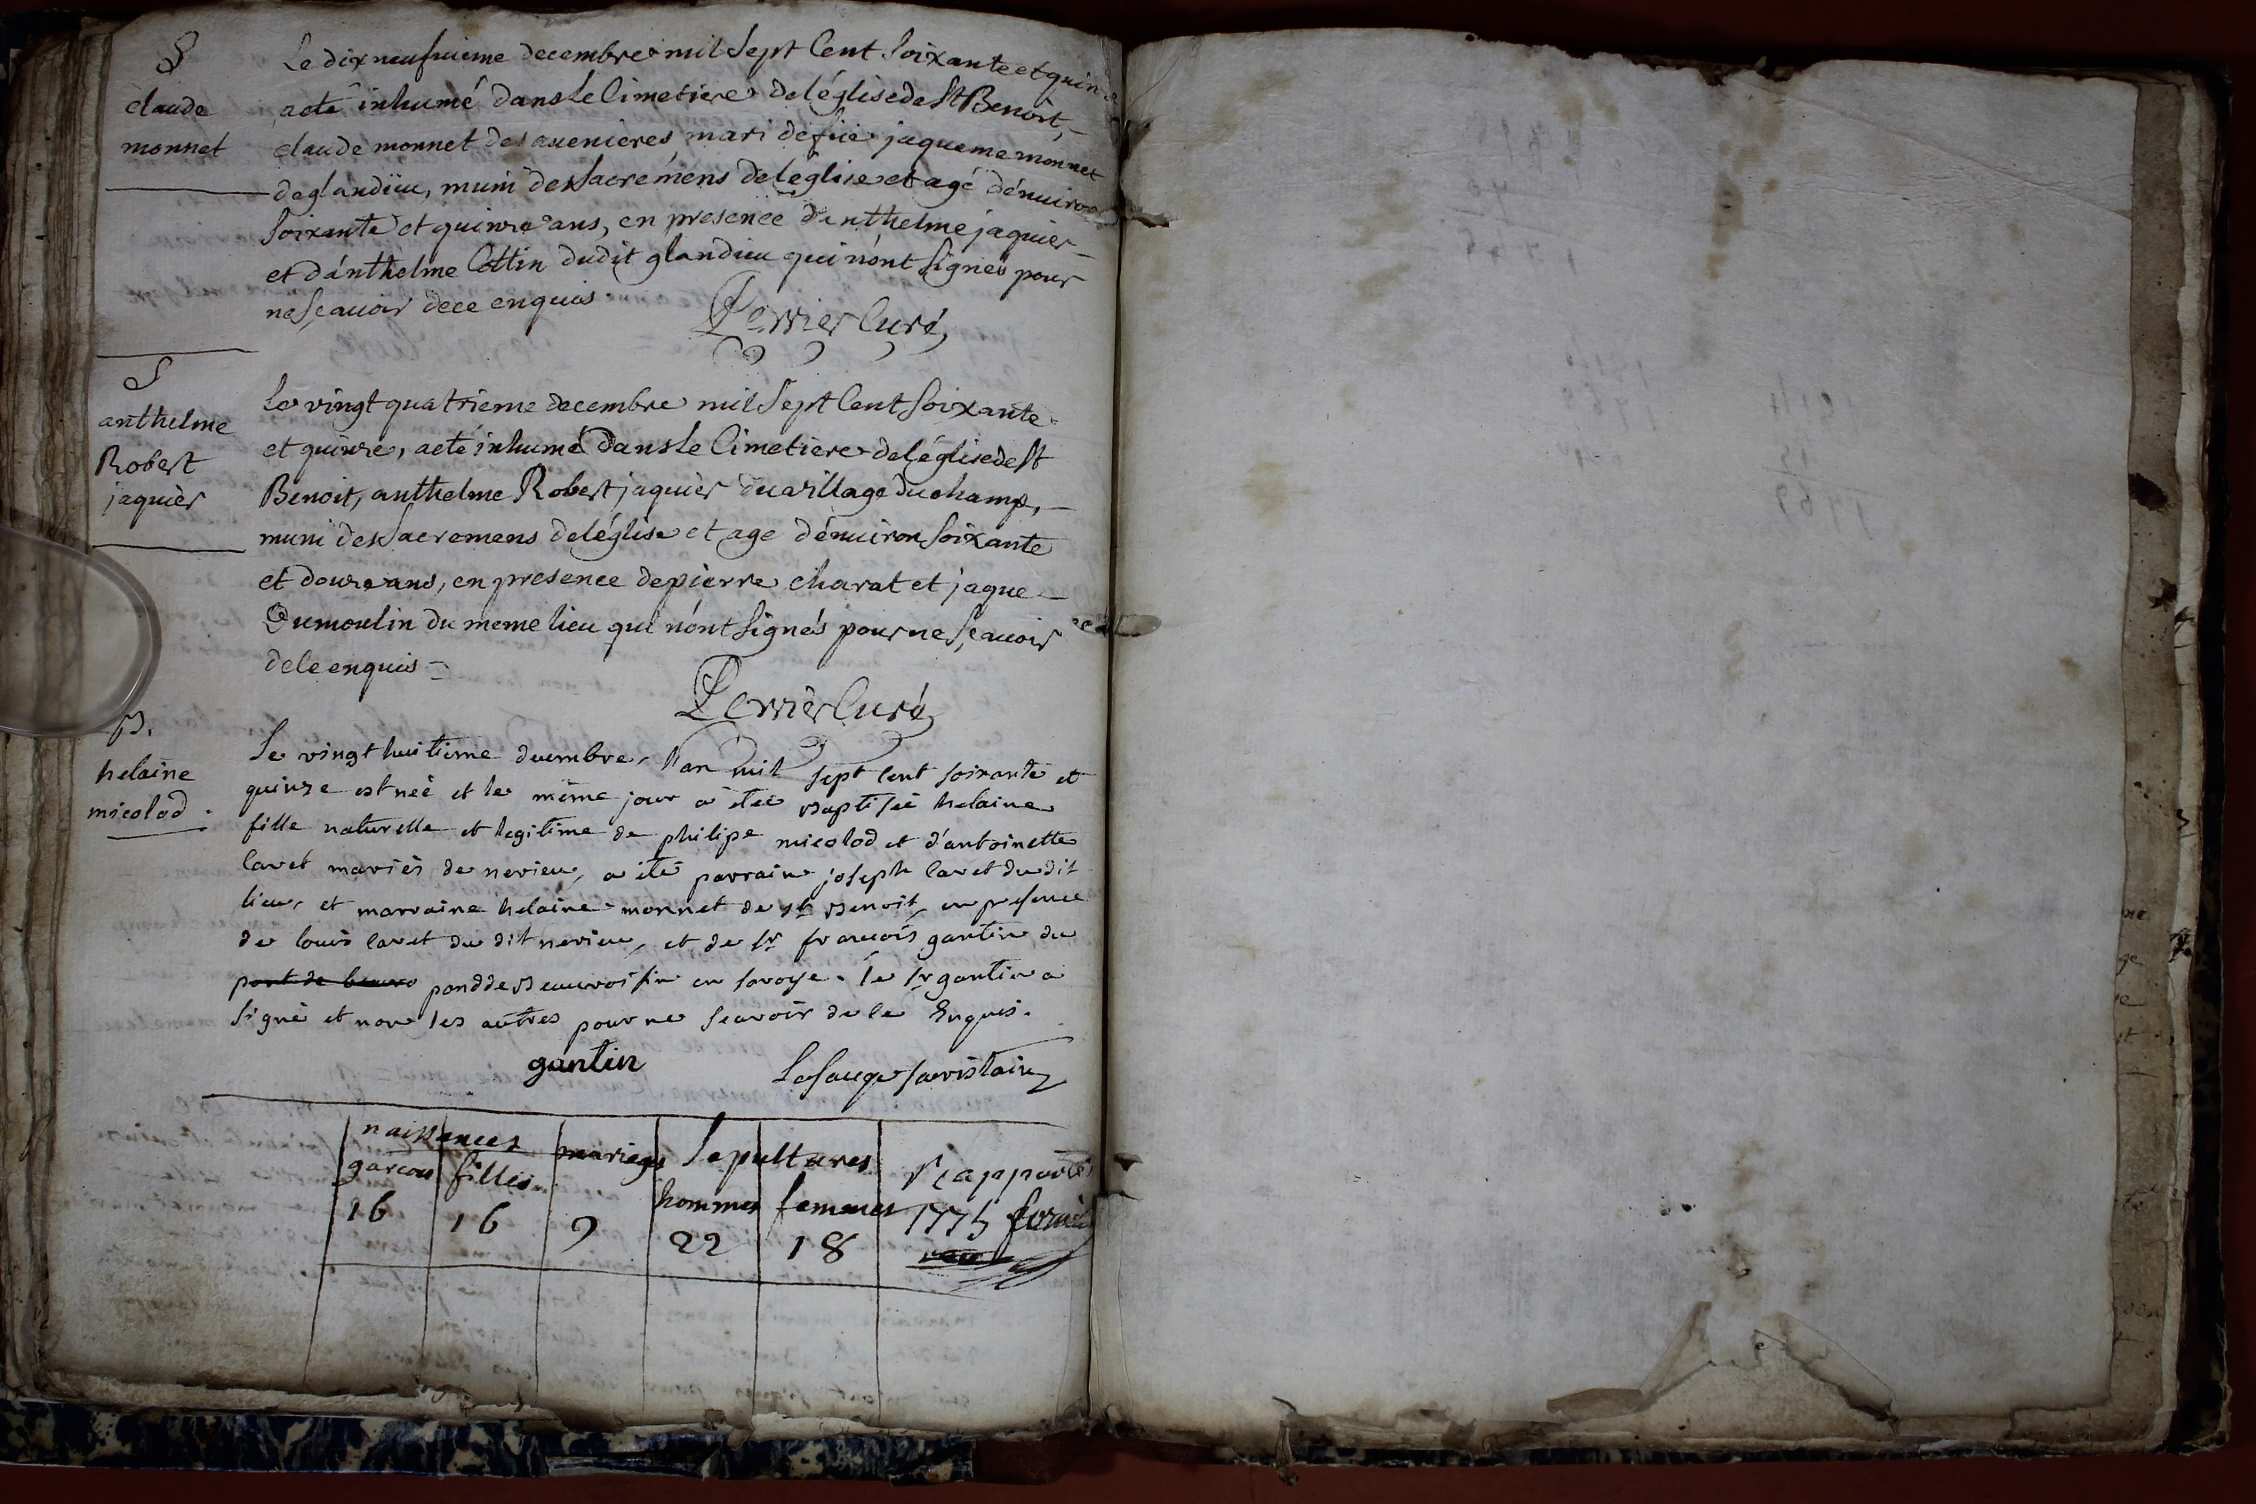 S
claude
monnet
Le dix neufvieme decembre mil Sept Cent Soixante et quin
acté inhumé dans le Cimetiere de léglise de St Benoit,
claude monnet des auenieres mari de füe jaqueme monnet
de glandiëu, muni des Sacremens de léglise et agé dénuiron
Soixante et quinze ans, en presence dánthelme jaquier
et dánthelme Cottin dudit glandieu qui nónt Signés pour
ne Sçauoir de ce enquis
Perrier Curé
S
anthelme
Robert
jaquier
Le vingt quatrieme decembre mil Sept Cent Soixante
et quinze, acté inhumé dans le Cimetiere de léglise de St
Benoit, anthelme Robert jaquier du village du champ,
muni des Sacremens de léglise et age dénuiron Soixante
et douze ans, en presence de pierre charat et jaque
Dumoulin du meme lieu qui nónt Signés pour ne Sçauoir
de ce enquis
Perrier Curé
B.
helaine
micolod
Le vingt huitieme decembre, l'an mil sept cent soixante et
quinze est neé et le même jour a étéé Baptisée helaine
fille naturelle et legitime de philipe micolod et d'antoinette
Cavet mariés de nerieu, a été parrain joseph Cavet du dit
lieu, et marraine helaine monnet de st Benoit, en presence
de louis Cavet du dit nerieu, et de sr francois gantin du
pont de beauvo pond de Beauvoisin en Savoye. le sr gantin a
Signé et non les autres pour ne Scavoir de ce Enquis.
gantin
Lesauge Sacristain
naissances mariages Sepultures
garcons filles hommes femmes Rapportés
16 16 9 22 18 1775